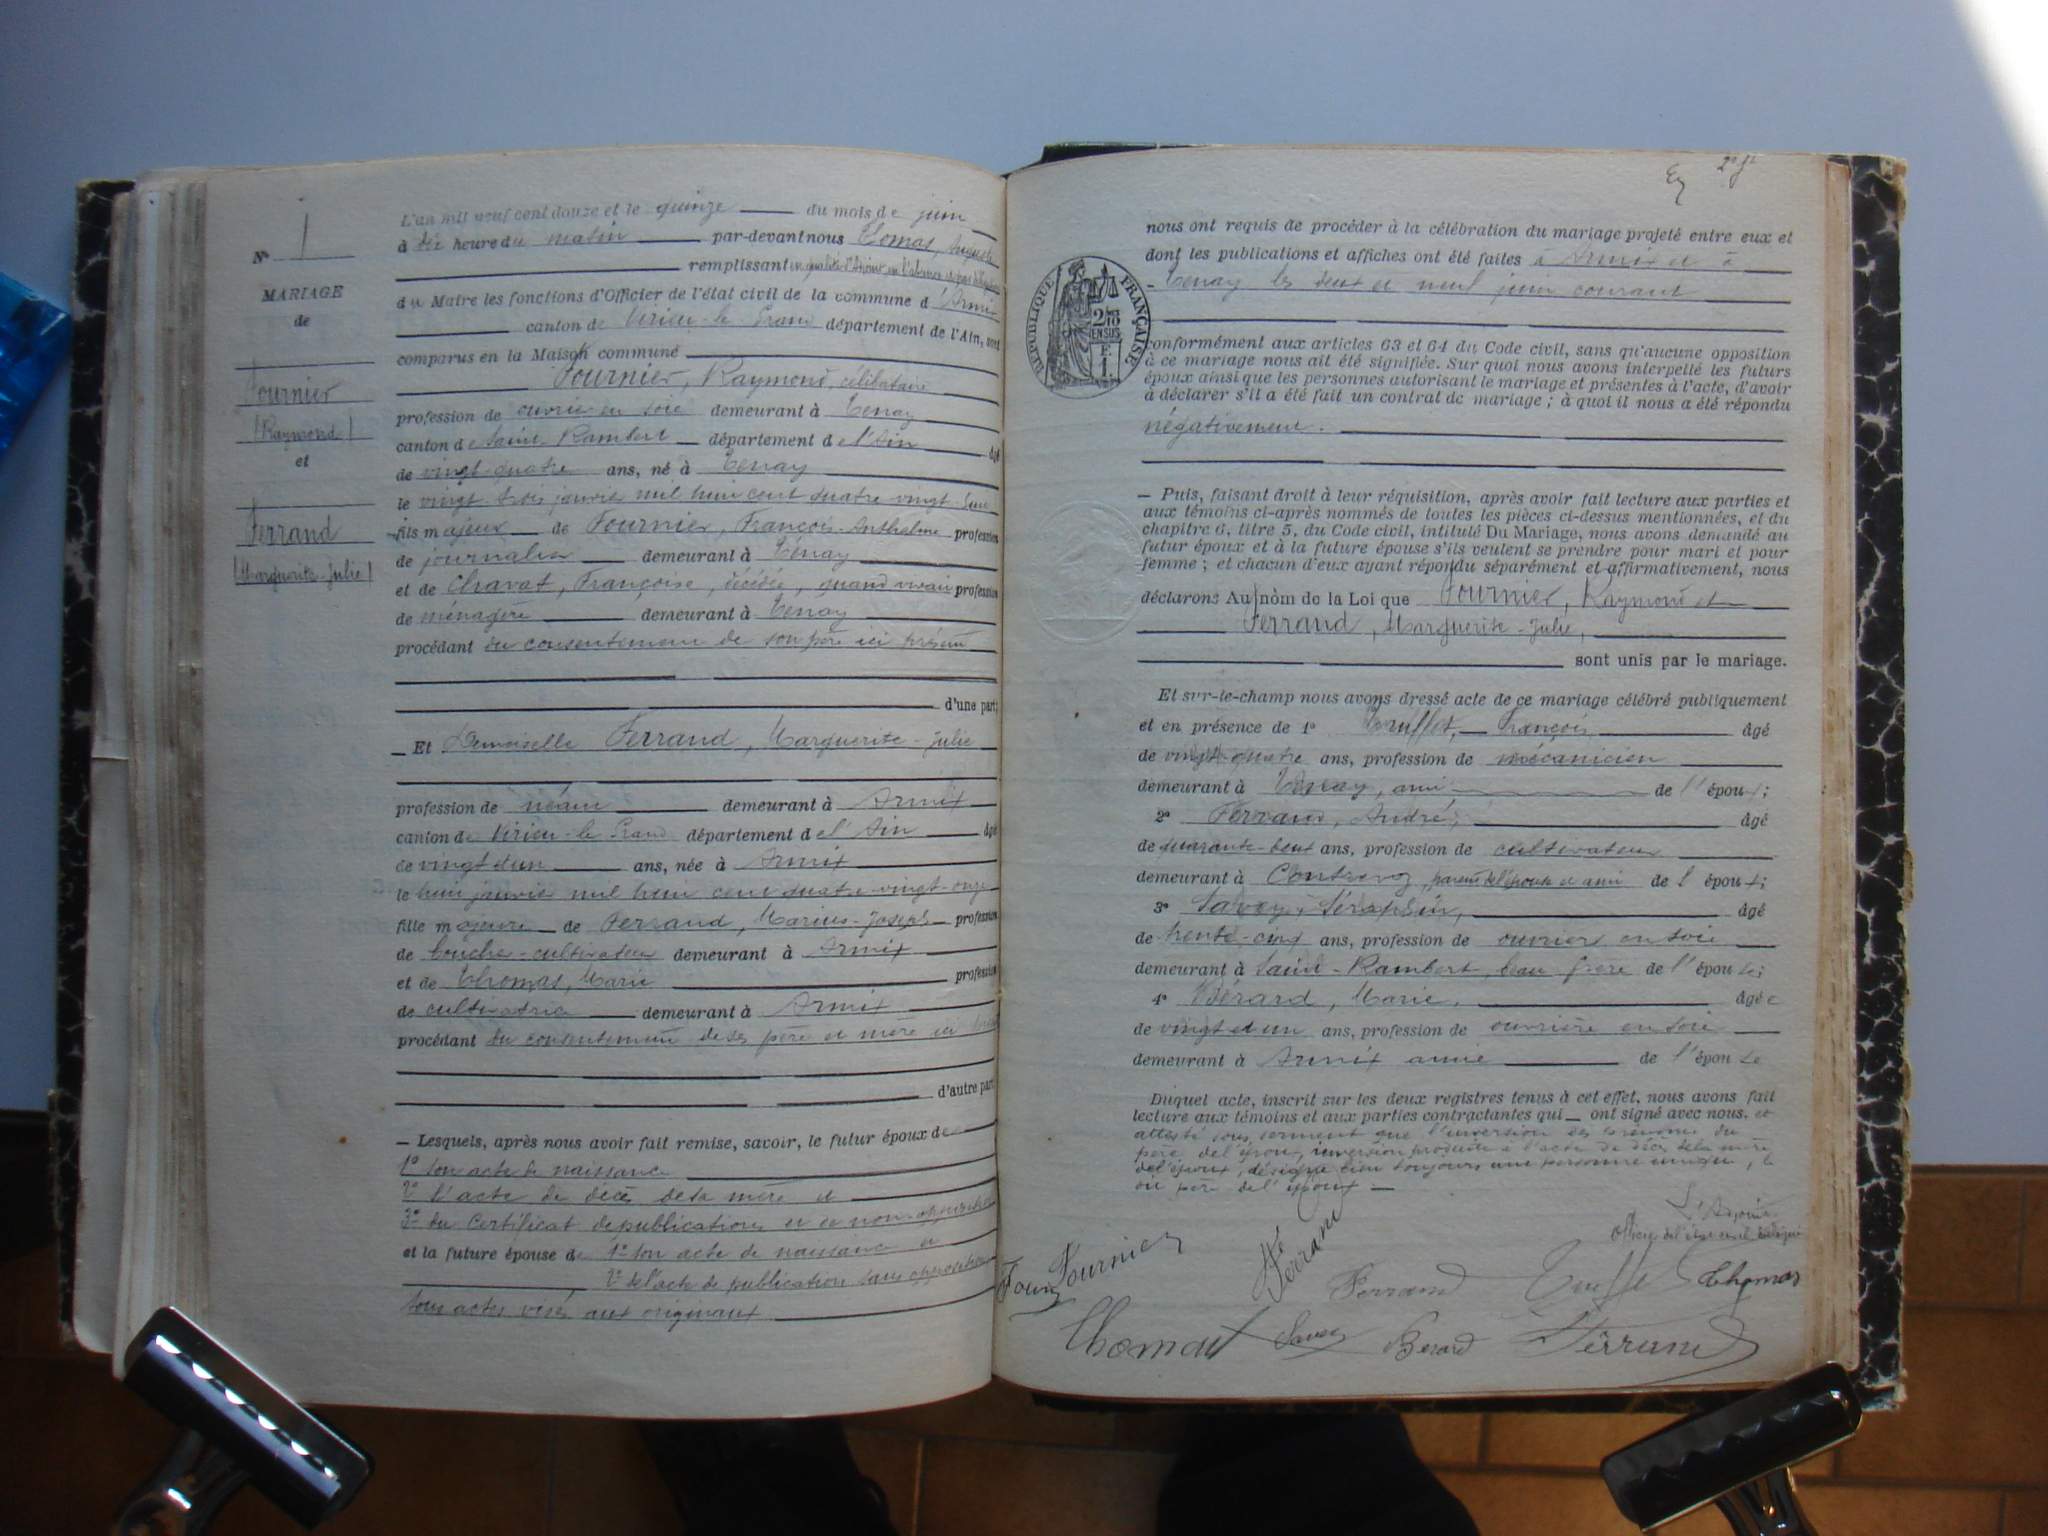 N° 1
MARIAGE
de
Fournier
(Raymond)
et
Ferrand
(Marguerite-Julie)
L'an mil neuf cent douze et le quinze du mois de juin
à dix heure du matin par-devant nous Thomas, Auguste
remplissant en qualité d'Adjoint en l'absence
du Maire les fonctions d'Officier de l'état civil de la commune d'Armix
canton de Virieu-le-Grand département de l'Ain, sont
comparus en la Maison commune
Fournier, Raymond, célibataire
profession de ouvrier en soie demeurant à Tenay
canton de Saint-Rambert département de l'Ain âgé
de vingt-quatre ans, né à Tenay
le vingt-trois janvier mil huit cent quatre-vingt-huit
fils majeur de Fournier, François-Anthelme profession
de journalier demeurant à Tenay
et de Chavat, Françoise, décédée, quand vivait profession
de ménagère demeurant à Tenay
procédant du consentement de son père ici présent
d'une part;
Et Demoiselle Ferrand, Marguerite-Julie
profession de néant demeurant à Armix
canton de Virieu-le-Grand département de l'Ain âgé
de vingt et un ans, née à Armix
le huit janvier mil huit cent quatre-vingt-onze
fille majeure de Ferrand, Marius-Joseph profession
de boucher-cultivateur demeurant à Armix
et de Thomas, Marie profession
de cultivatrice demeurant à Armix
procédant du consentement de ses père et mère ici
d'autre part
— Lesquels, après nous avoir fait remise, savoir, le futur époux de
1° son acte de naissance
2° l'acte de décès de sa mère et
3° du certificat de publications et de non-opposition
et la future épouse de 1° son acte de naissance et
2° de l'acte de publication sans opposition
tous actes visés aux originaux
2e ft
nous ont requis de procéder à la célébration du mariage projeté entre eux et
dont les publications et affiches ont été faites à Armix et à
Tenay les deux et neuf juin courant
RÉPUBLIQUE FRANÇAISE
conformément aux articles 63 et 64 du Code civil, sans qu'aucune opposition
à ce mariage nous ait été signifiée. Sur quoi nous avons interpellé les futurs
époux ainsi que les personnes autorisant le mariage et présentes à l'acte, d'avoir
à déclarer s'il a été fait un contrat de mariage ; à quoi il nous a été répondu
négativement.
— Puis, faisant droit à leur réquisition, après avoir fait lecture aux parties et
aux témoins ci-après nommés de toutes les pièces ci-dessus mentionnées, et du
chapitre 6, titre 5, du Code civil, intitulé Du Mariage, nous avons demandé au
futur époux et à la future épouse s'ils veulent se prendre pour mari et pour
femme ; et chacun d'eux ayant répondu séparément et affirmativement, nous
déclarons Au nom de la Loi que Fournier, Raymond et
Ferrand, Marguerite-Julie,
sont unis par le mariage.
Et sur-le-champ nous avons dressé acte de ce mariage célébré publiquement
et en présence de 1° Truffet, François âgé
de vingt-quatre ans, profession de mécanicien
demeurant à Tenay, ami de l'époux;
2° Ferrand, André, âgé
de quarante-deux ans, profession de cultivateur
demeurant à Contrevoz, parent de l'épouse et ami de l'époux;
3° Savey, Séraphin, âgé
de trente-cinq ans, profession de ouvrier en soie
demeurant à Saint-Rambert, beau frère de l'épouse;
4° Bérard, Marie, âgée
de vingt et un ans, profession de ouvrière en soie
demeurant à Armix amie de l'épouse
Duquel acte, inscrit sur les deux registres tenus à cet effet, nous avons fait
lecture aux témoins et aux parties contractantes qui ont signé avec nous, et
attesté sous serment que l'inversion des prénoms du
père de l'époux, inversion produite à l'acte de décès de la mère
de l'époux, désigne bien toujours une personne unique, le
dit père de l'époux —
L'Adjoint
Officier de l'état civil délégué
Fournier
Fournier
Ferrand
Ferrand
Truffet
Thomas
Thomas
Savey
Bérard
Ferrand